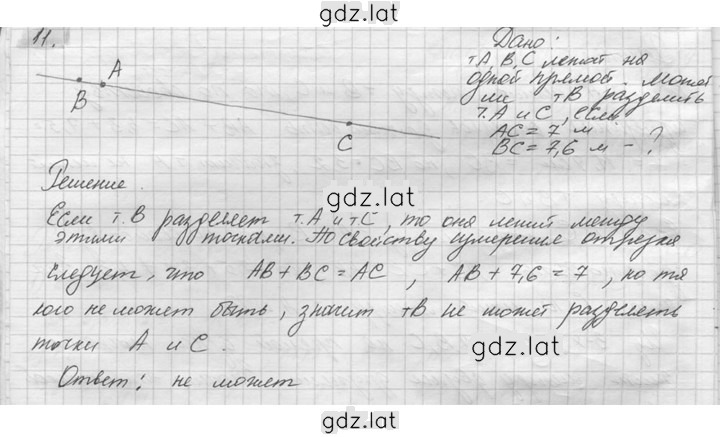 gdz.lat
11.
A
B
C
Дано:
тА, В, С лежат на
одной прямой. Может
ли тВ разделить
т.А и С, если
АС = 7 м
ВС = 7,6 м - ?
Решение.
gdz.lat
Если т.В разделяет т.А и тС, то она лежит между
этими точками. По свойству измерения отрезка
gdz.lat
следует, что АВ + ВС = АС, АВ + 7,6 = 7, но та
кого не может быть, значит тВ не может разделять
точки А и С.
gdz.lat
Ответ: не может
gdz.lat